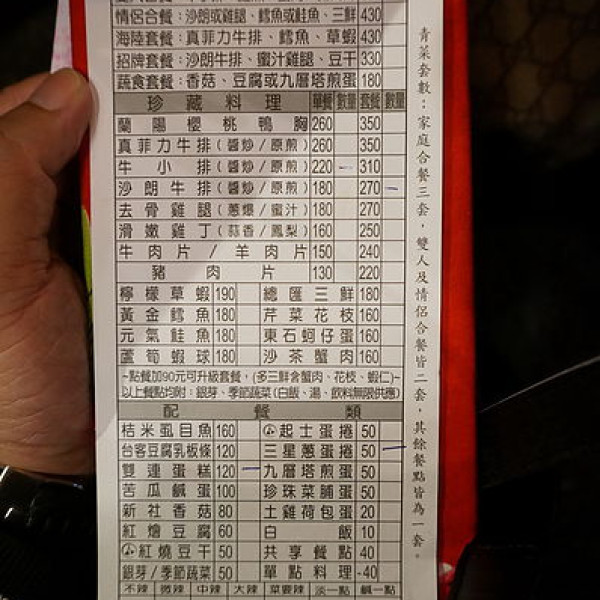 情侶合餐：沙朗或雞腿、鱈魚或鮭魚、三鮮 430
海陸套餐：真菲力牛排、鱈魚、草蝦 430
招牌套餐：沙朗牛排、蜜汁雞腿、豆干 330
蔬食套餐：香菇、豆腐或九層塔煎蛋 180
珍藏料理 單餐 數量 套餐 數量
蘭陽櫻桃鴨胸 260 350
真菲力牛排(醬炒/原煎) 260 350
牛小排(醬炒/原煎) 220 310
沙朗牛排(醬炒/原煎) 180 270
去骨雞腿(蔥爆/蜜汁) 180 270
滑嫩雞丁(蒜香/鳳梨) 160 250
牛肉片/羊肉片 150 240
豬肉片 130 220
檸檬草蝦 190 總匯三鮮 180
黃金鱈魚 180 芹菜花枝 160
元氣鮭魚 180 東石蚵仔蛋 160
蘆筍蝦球 180 沙茶蟹肉 160
~點餐加90元可升級套餐，(多三鮮含蟹肉、花枝、蝦仁)~
以上餐點均附：銀芽、季節蔬菜(白飯、湯、飲料無限供應)
配餐類
桔米虱目魚 160 起士蛋捲 50
台客豆腐乳板條 120 三星蔥蛋捲 50
雙連蛋糕 120 九層塔煎蛋 50
苦瓜鹹蛋 100 珍珠菜脯蛋 50
新社香菇 80 土雞荷包蛋 20
紅燴豆腐 60 白飯 10
紅燒豆干 50 共享餐點 40
銀芽/季節蔬菜 50 單點料理 -40
不辣 微辣 中辣 大辣 菜要辣 淡一點 鹹一點
青菜套數：家庭合餐三套，雙人及情侶合餐皆二套，其餘餐點皆為一套。